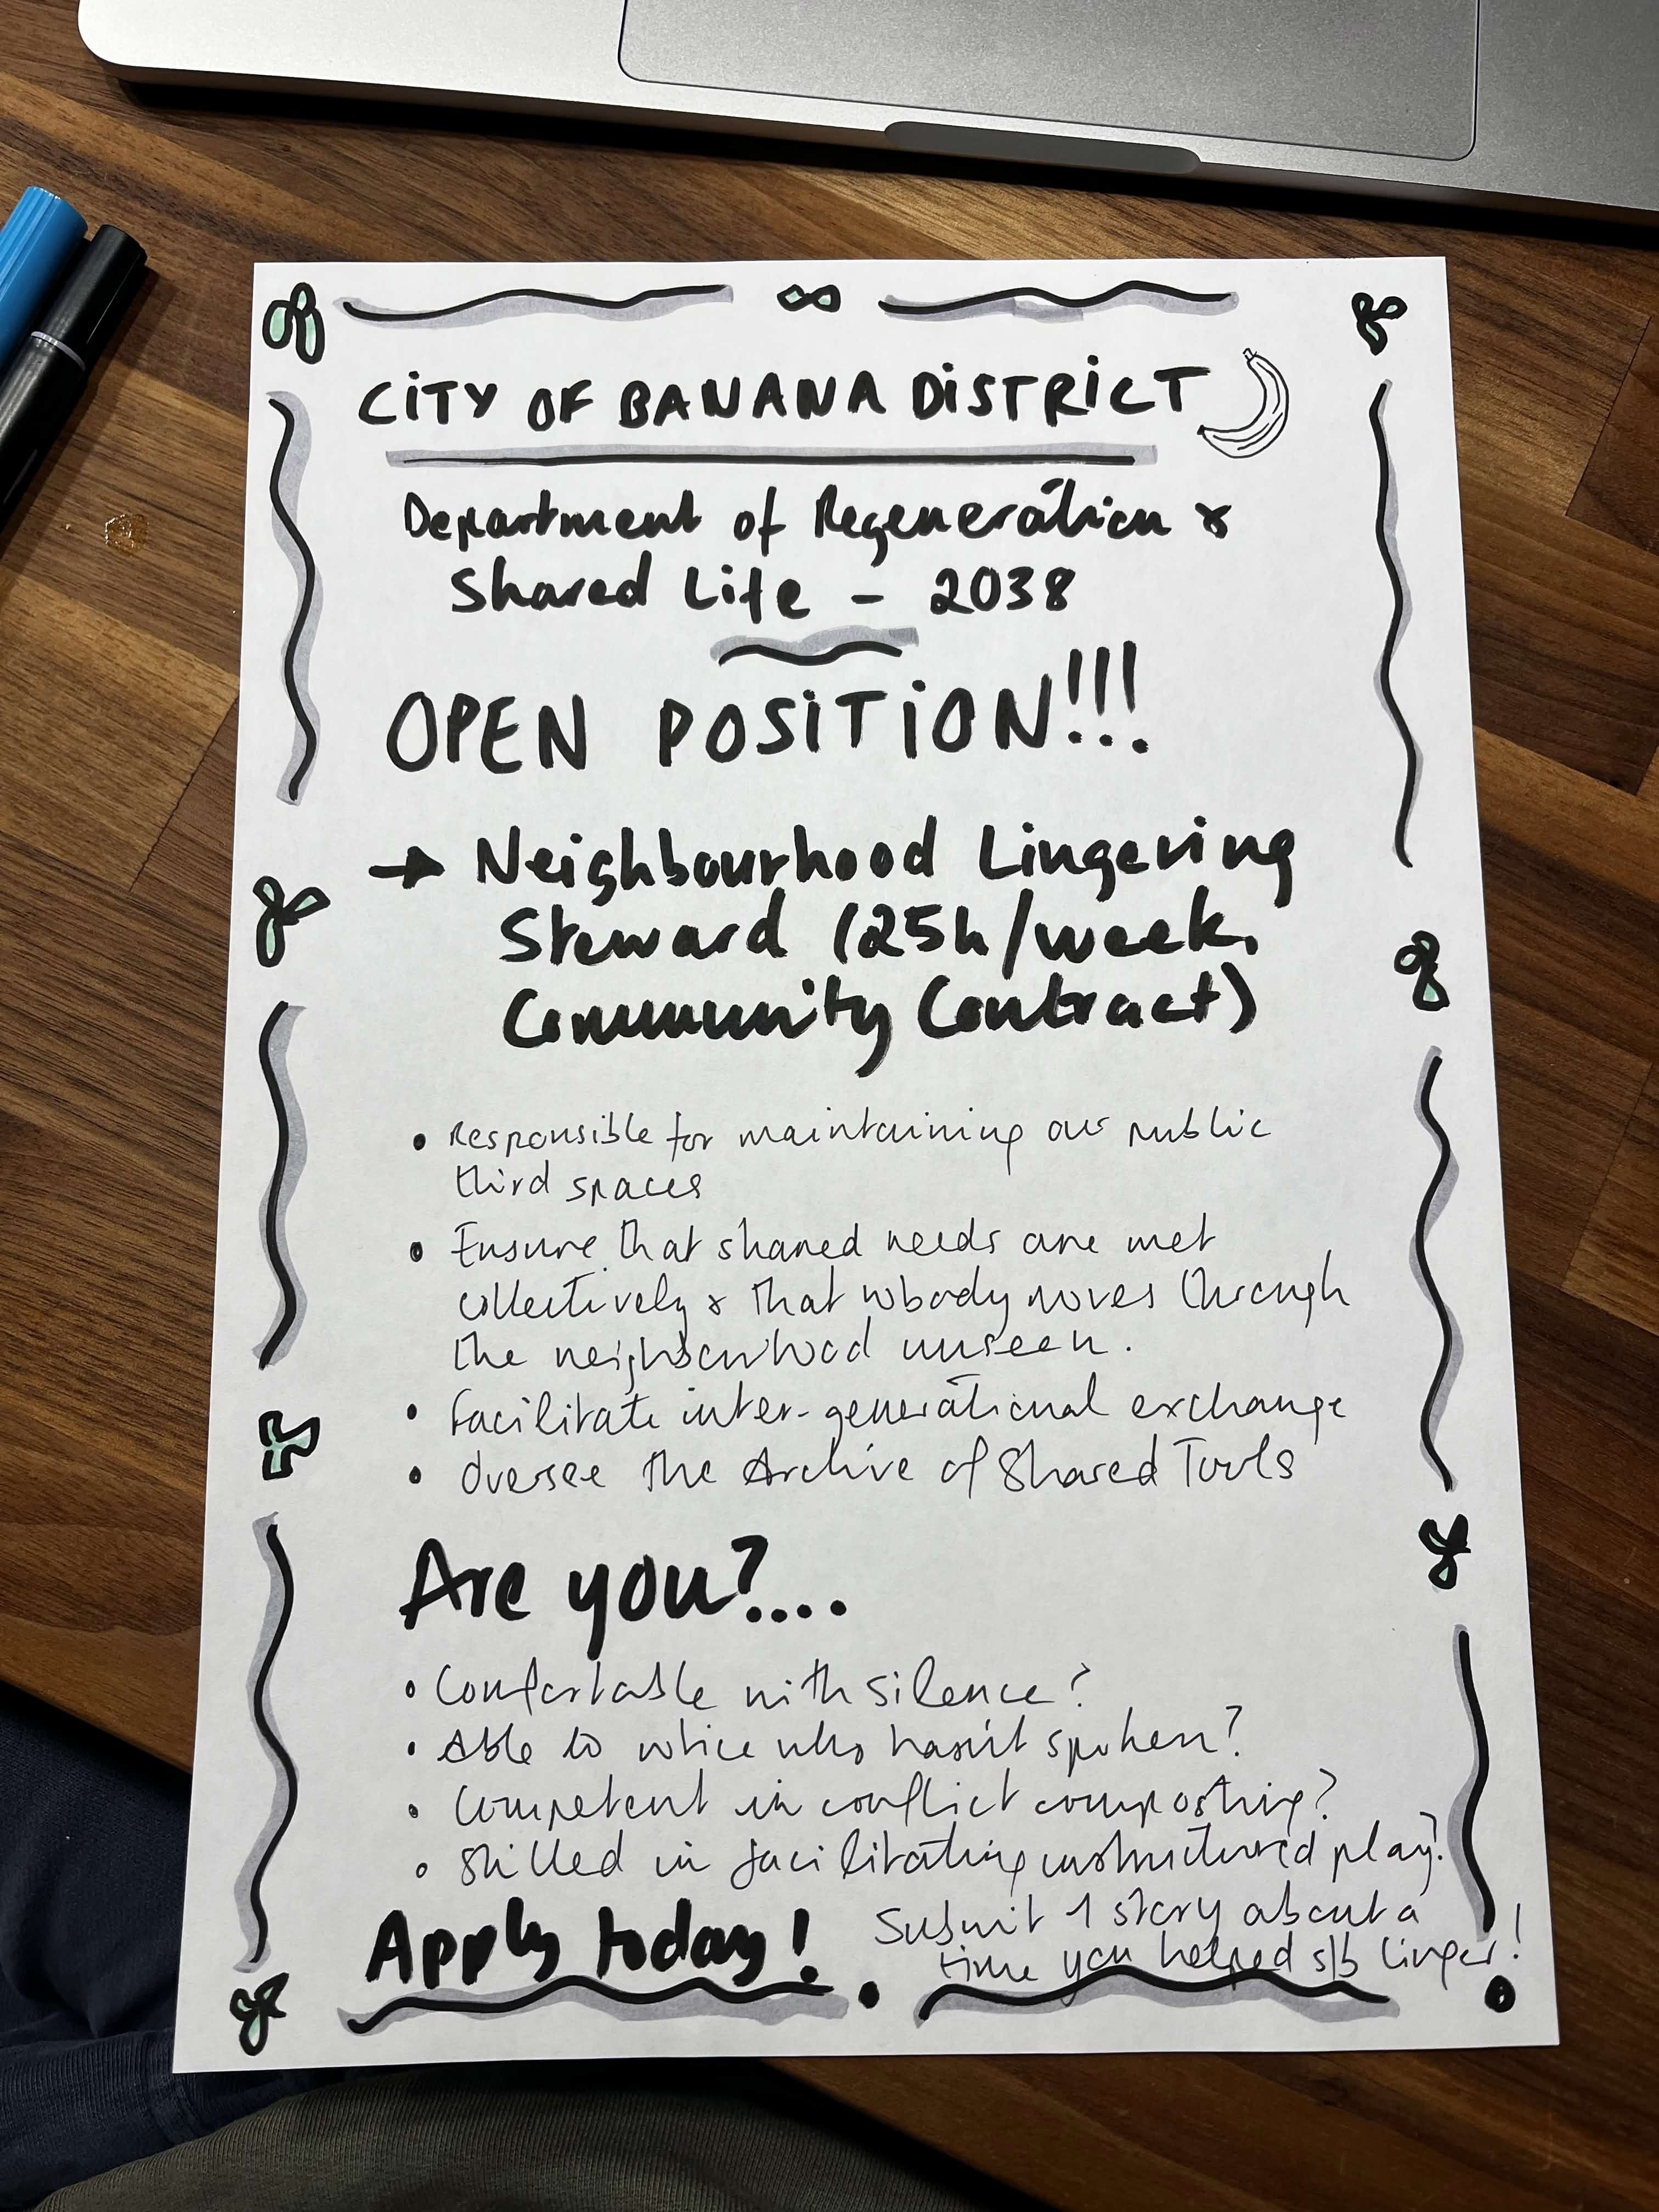 CiTY OF BANANA DiSTRiCT
Department of Regeneration &
Shared Life - 2038
OPEN POSiTiON!!!
→ Neighbourhood Lingering
Steward (25h/week,
Community Contract)
• Responsible for maintaining our public
third spaces
• Ensure that shared needs are met
collectively & that nobody moves through
the neighbourhood unseen.
• Facilitate inter-generational exchange
• Oversee the Archive of Shared Tools
Are you?....
• Comfortable with silence?
• Able to notice who hasn't spoken?
• Competent in conflict composting?
• Skilled in facilitating unstructured play?
Apply today!
Submit 1 story about a
time you helped s/b linger!